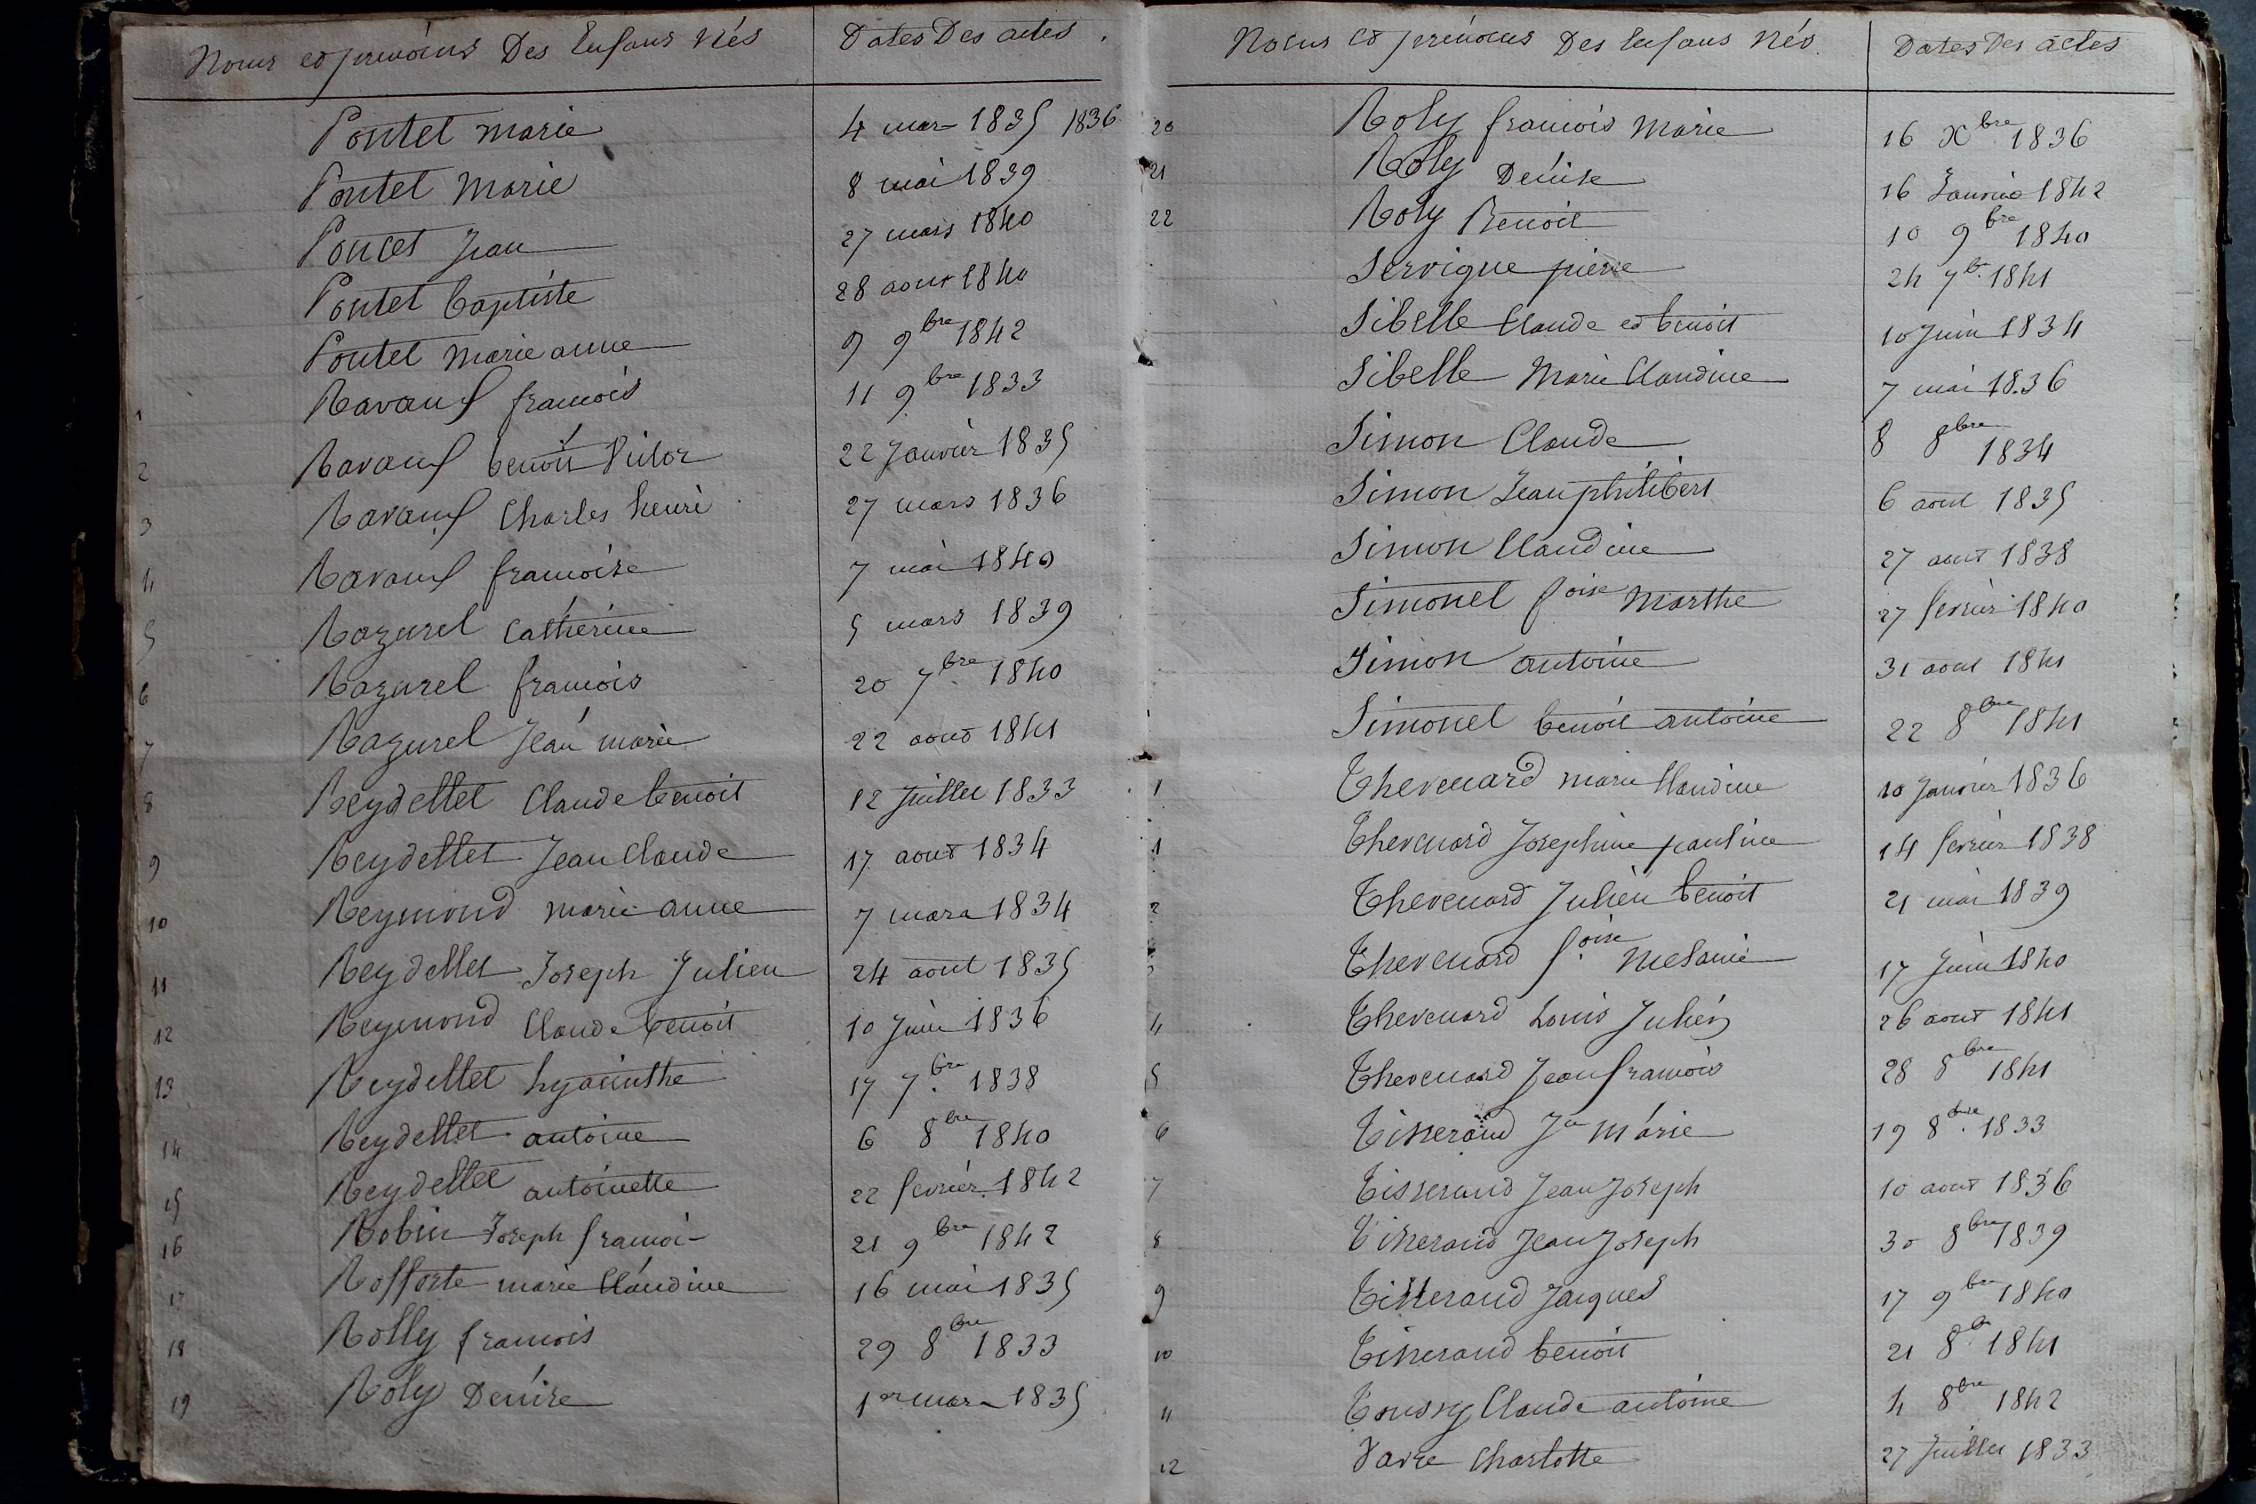 Noms et prenoms Des Enfans Nés Dates Des actes.
Pontet marie 4 mars 1835 1836
Pontet Marie 8 mai 1839
Poncet Jean 27 mars 1840
Pontet baptiste 28 aout 1840
Pontet marie anne 9 9bre 1842
1 Ravauf francois 11 9bre 1833
2 Ravauf benoit Victor 22 Janvier 1835
3 Ravauf Charles henri 27 mars 1836
4 Ravauf francoise 7 mai 1840
5 Razurel Catherine 5 mars 1839
6 Razurel francois 20 7bre 1840
7 Razurel Jean marie 22 aout 1841
8 Reydellet Claude benoit 12 Juillet 1833
9 Reydellet Jean Claude 17 aout 1834
10 Reymond marie anne 7 mars 1834
11 Reydellet Joseph Julien 24 aout 1835
12 Reymond Claude benoit 10 Juin 1836
13 Reydellet hyacinthe 17 7bre 1838
14 Reydellet antoine 6 8bre 1840
15 Reydellet antoinette 22 fevrier 1842
16 Robin Joseph francoi 21 9bre 1842
17 Roffoste marie Claudine 16 mai 1835
18 Rolly francois 29 8bre 1833
19 Roly Denise 1er mars 1835
Noms et prenoms Des Enfans Nés. Dates Des actes
20 Roly francois Marie 16 Xbre 1836
21 Roly Denise 16 Janvier 1842
22 Roly Benoit 10 9bre 1840
Servigne pierre 24 7b. 1841
Sibelle Claude et benoit 10 Juin 1834
Sibelle Marie Claudine 7 mai 1836
Simon Claude 8 8bre 1834
Simon Jean philibert 6 aout 1835
Simon Claudine 27 aout 1838
Simonel foise Marthe 27 fevrier 1840
Simon antoine 31 aout 1841
Simonel benoit antoine 22 8bre 1841
1 Thevenard marie Claudine 10 Janvier 1836
1 Thevenard Josephine pauline 14 fevrier 1838
2 Thevenard Julien benoit 21 mai 1839
3 Thevenard foise Melanie 17 Juin 1840
4 Thevenard Louis Julien 26 aout 1841
5 Thevenard Jean francois 28 8bre 1841
6 Tisserand Jn Marie 19 8bre. 1833
7 Tisserand Jean Joseph 10 aout 1836
8 Tisserand Jean Joseph 30 8bre 1839
9 Tisserand Jacques 17 9bre 1840
10 Tisserand benoit 21 8b 1841
11 Toussy Claude antoine 4 8bre 1842
12 Varre Charlotte 27 Juillet 1833